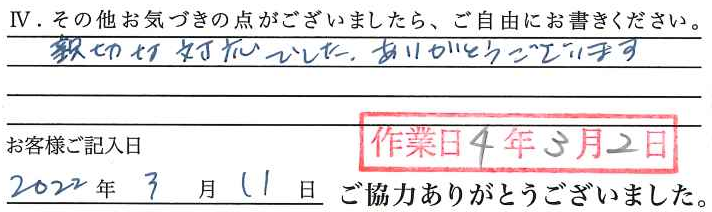 Ⅳ．その他お気づきの点がございましたら、ご自由にお書きください。
親切な対応でした。ありがとうございます
お客様ご記入日
作業日 4年3月2日
2022年 3月 11日
ご協力ありがとうございました。